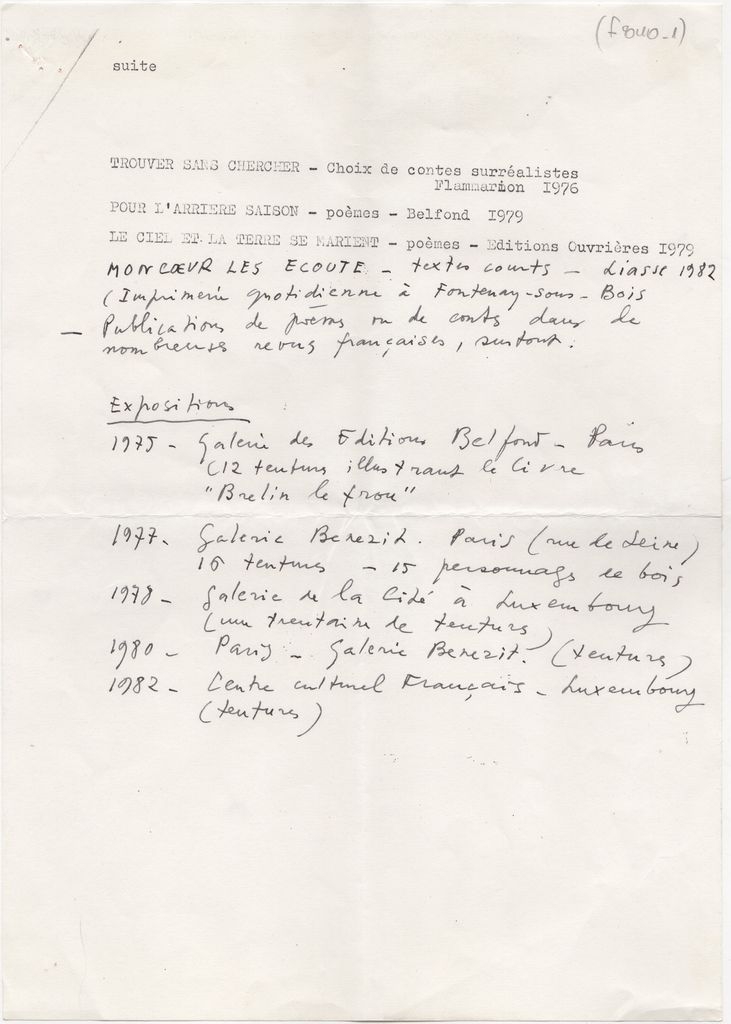 suite
TROUVER SANS CHERCHER - Choix de contes surréalistes
Flammarion 1976
POUR L'ARRIERE SAISON - poèmes - Belfond 1979
LE CIEL ET LA TERRE SE MARIENT - poèmes - Editions Ouvrières 1979
MON CŒUR LES ECOUTE - textes courts - Liasse 1982
(Imprimerie quotidienne à Fontenay-sous-Bois
- Publications de poèmes ou de contes dans de
nombreuses revues françaises, surtout :
Expositions
1975 - Galerie des Editions Belfond - Paris
(12 tentures illustrant le livre
"Brelin le frou"
1977 - Galerie Benezit. Paris (rue de Seine)
16 tentures - 15 personnages de bois
1978 - Galerie de la Cité à Luxembourg
(une trentaine de tentures)
1980 - Paris - Galerie Benezit. (tentures)
1982 - Centre culturel Français - Luxembourg
(tentures)